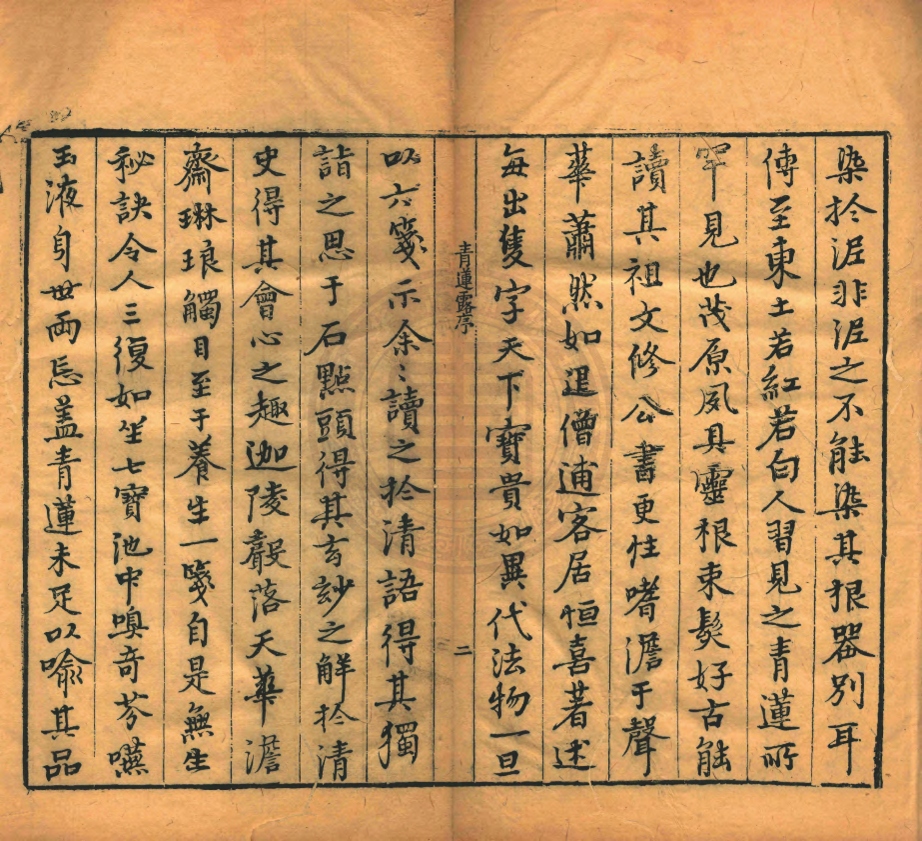 染扵泥非泥之不能染其根器别耳
傳至東土若紅若白人習見之青蓮所
罕見也茂原夙具靈根束髮好古能
讀其祖文修公書更性嗜澹于聲
華蕭然如退僧逋客居恒喜著述
每出隻字天下寶貴如異代法物一旦
青蓮露序
二
以六箋示余〻讀之扵清語得其獨
詣之思于石點頭得其玄玅之解扵清
史得其會心之趣迦陵聲落天華澹
齋琳琅觸目至于養生一箋自是無生
秘訣令人三復如坐七寶池中嗅奇芬嚥
玉液身世兩忘盖青蓮未足以喻其品